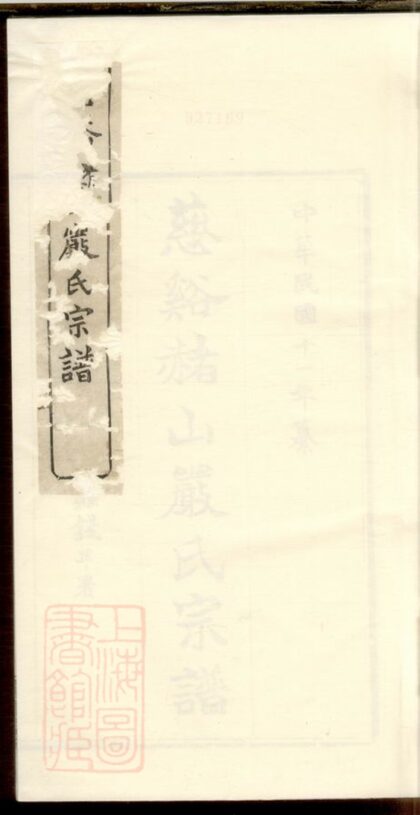 中華民國十一年纂
慈谿赭山嚴氏宗譜
嚴氏宗譜
上海圖
書館藏